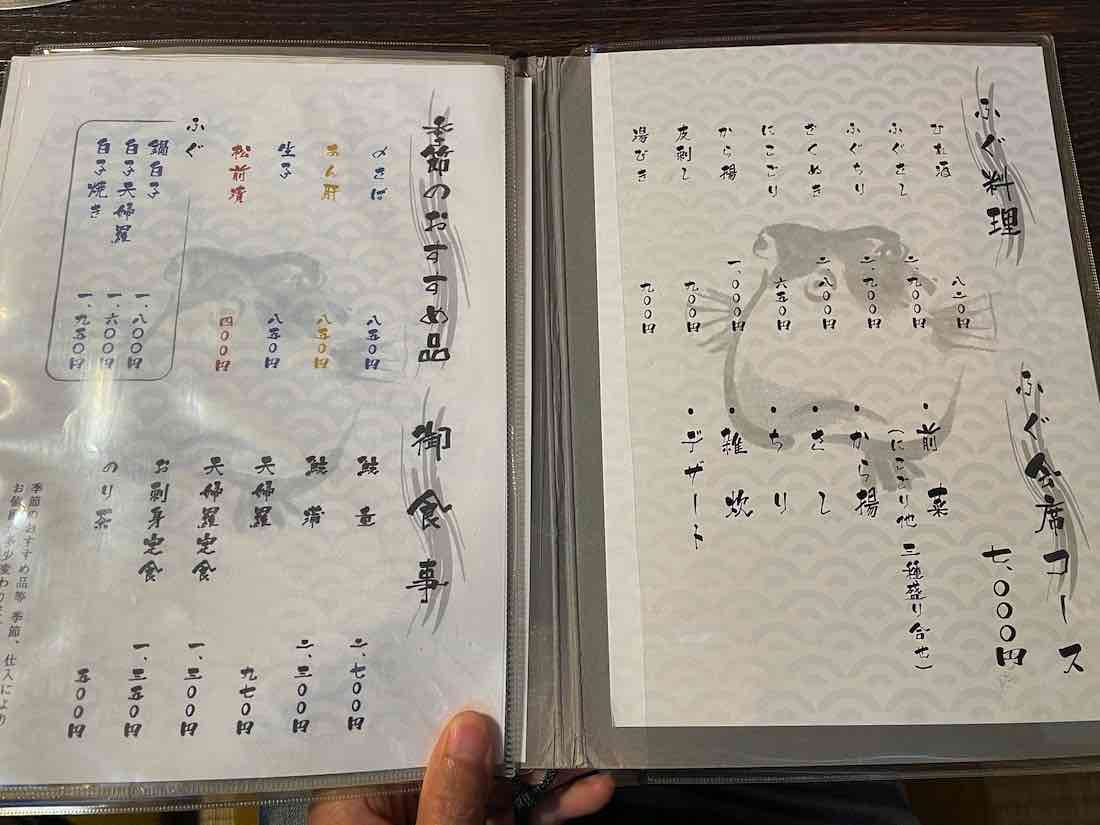 ふぐ料理
ひれ酒
ふぐさし 二、九〇〇円
ふぐちり 二、九〇〇円
ざくぬき
にこごり 六五〇円
から揚 一、〇〇〇円
皮刺し 九〇〇円
湯びき 九〇〇円
ふぐ会席コース
七、〇〇〇円
・前菜
(にこごり他 三種盛り合せ)
・から揚
・さし
・ちり
・雑炊
・デザート
季節のおすすめ品
〆さば 八五〇円
あん肝 八五〇円
生子 八五〇円
松前漬 四〇〇円
ふぐ
鍋白子 一、八〇〇円
白子天婦羅 一、六〇〇円
白子焼き 一、九五〇円
御食事
鰻重 二、七〇〇円
鰻蒲 二、三〇〇円
天婦羅 九七〇円
天婦羅定食 一、三〇〇円
お刺身定食 一、三五〇円
のり茶 五〇〇円
季節のおすすめ品等 季節、仕入により